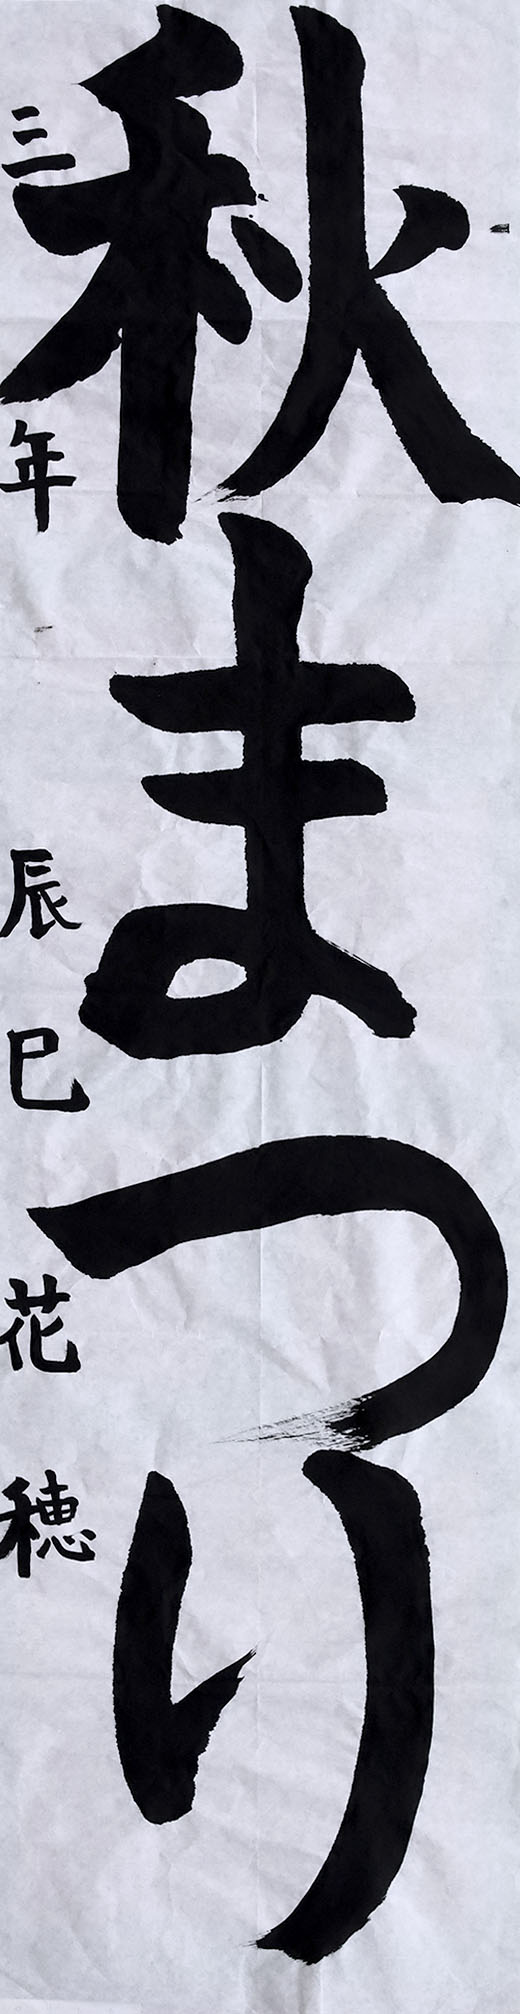 秋まつり
三年 辰巳花穂